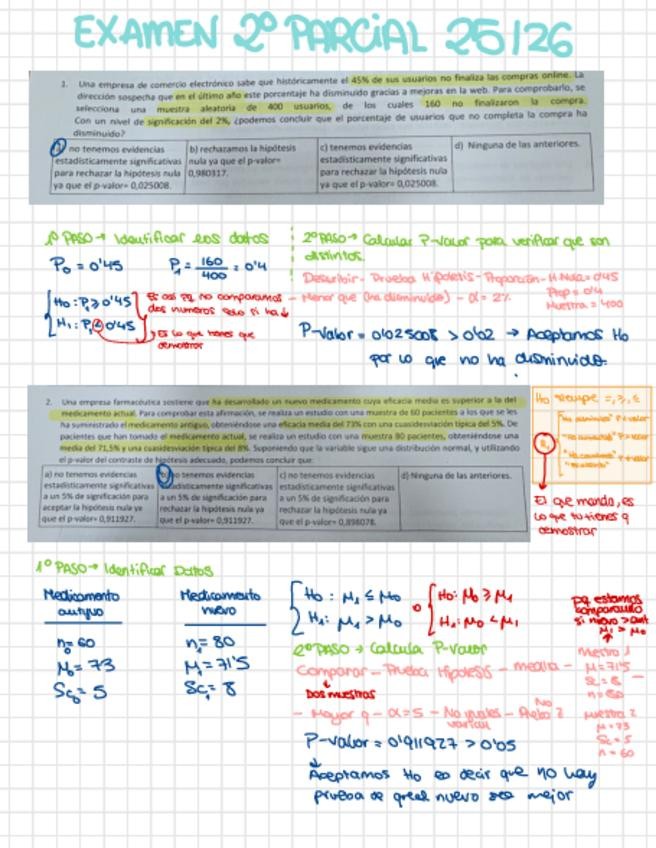 EXAMEN 2º PARCIAL 25/26
1. Una empresa de comercio electrónico sabe que históricamente el 45% de sus usuarios no finaliza las compras online. La
dirección sospecha que en el último año este porcentaje ha disminuido gracias a mejoras en la web. Para comprobarlo, se
selecciona una muestra aleatoria de 400 usuarios, de los cuales 160 no finalizaron la compra.
Con un nivel de significación del 2%, ¿podemos concluir que el porcentaje de usuarios que no completa la compra ha
disminuido?
a) no tenemos evidencias
estadísticamente significativas
para rechazar la hipótesis nula
ya que el p-valor= 0,025008.
b) rechazamos la hipótesis
nula ya que el p-valor=
0,980317.
c) tenemos evidencias
estadísticamente significativas
para rechazar la hipótesis nula
ya que el p-valor= 0,025008.
d) Ninguna de las anteriores.
1º PASO → Identificar los datos
P₀ = 0'45 P₁ = 160/400 = 0'4
H₀: P₁ ≥ 0'45
H₁: P₁ < 0'45
Es así pq no comparamos
dos numeros solo si ha ↓
Es lo que tienes que
demostrar
2º PASO → Calcular P-Valor para verificar que son
distintos.
Describir - Prueba Hipótesis - Proporción - H.Nula = 0'45
- Menor que (ha disminuido) - α = 2%
Prop = 0'4
Muestra = 400
P-Valor = 0'025008 > 0'02 → Aceptamos H₀
por lo que no ha disminuido.
2. Una empresa farmacéutica sostiene que ha desarrollado un nuevo medicamento cuya eficacia media es superior a la del
medicamento actual. Para comprobar esta afirmación, se realiza un estudio con una muestra de 60 pacientes a los que se les
ha suministrado el medicamento antiguo, obteniéndose una eficacia media del 73% con una cuasidesviación típica del 5%. De
pacientes que han tomado el medicamento actual, se realiza un estudio con una muestra 80 pacientes, obteniéndose una
media del 71,5% y una cuasidesviación típica del 8%. Suponiendo que la variable sigue una distribución normal, y utilizando
el p-valor del contraste de hipótesis adecuado, podemos concluir que:
a) no tenemos evidencias
estadísticamente significativas
a un 5% de significación para
aceptar la hipótesis nula ya
que el p-valor= 0,911927.
b) no tenemos evidencias
estadísticamente significativas
a un 5% de significación para
rechazar la hipótesis nula ya
que el p-valor= 0,911927.
c) no tenemos evidencias
estadísticamente significativas
a un 5% de significación para
rechazar la hipótesis nula ya
que el p-valor= 0,898078.
d) Ninguna de las anteriores.
H₀ siempre =, ≥, ≤
El que manda, es
lo que tu tienes q
demostrar
1º PASO → Identificar Datos
Medicamento
antiguo
n₀ = 60
μ₀ = 73
Sc₀ = 5
Medicamento
nuevo
n₁ = 80
μ₁ = 71'5
Sc₁ = 8
H₀: μ₁ ≤ μ₀
H₁: μ₁ > μ₀
o
H₀: μ₀ ≥ μ₁
H₁: μ₀ < μ₁
pq estamos
comparando
si nuevo > ant
μ₁ > μ₀
2º PASO → Calcula P-Valor
Comparar - Prueba Hipotesis - media -
Dos muestras
- Mayor q - α = 5 - No iguales -
Muestra 1
μ = 71'5
Sc = 8
n = 60
Muestra 2
μ = 73
Sc = 5
n = 60
P-Valor = 0'911927 > 0'05
Aceptamos H₀ es decir que no hay
prueba de q el nuevo sea mejor